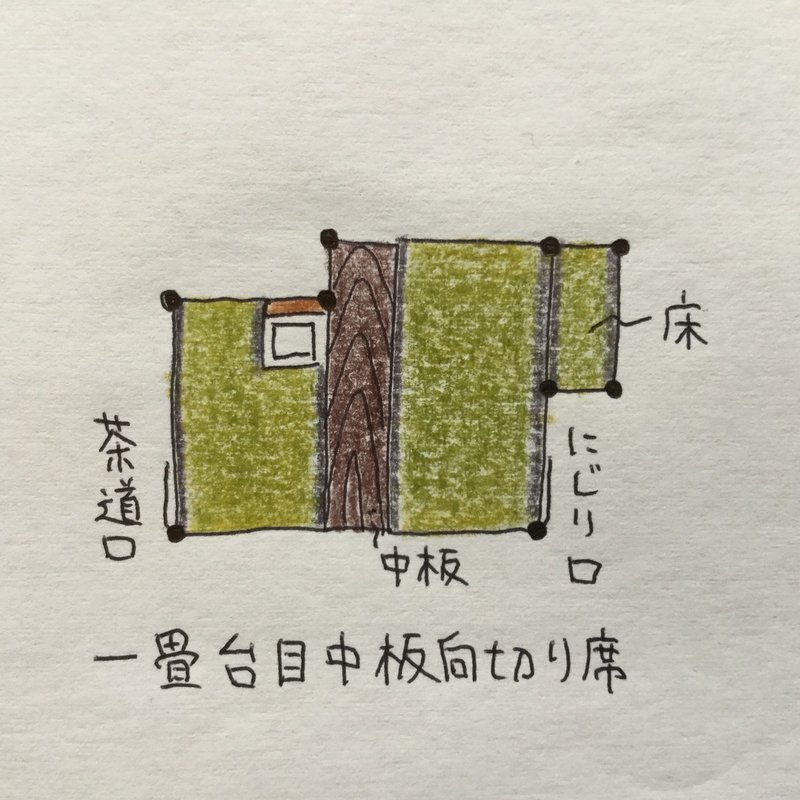 床
茶道口
にじり口
中板
一畳台目中板向切り席